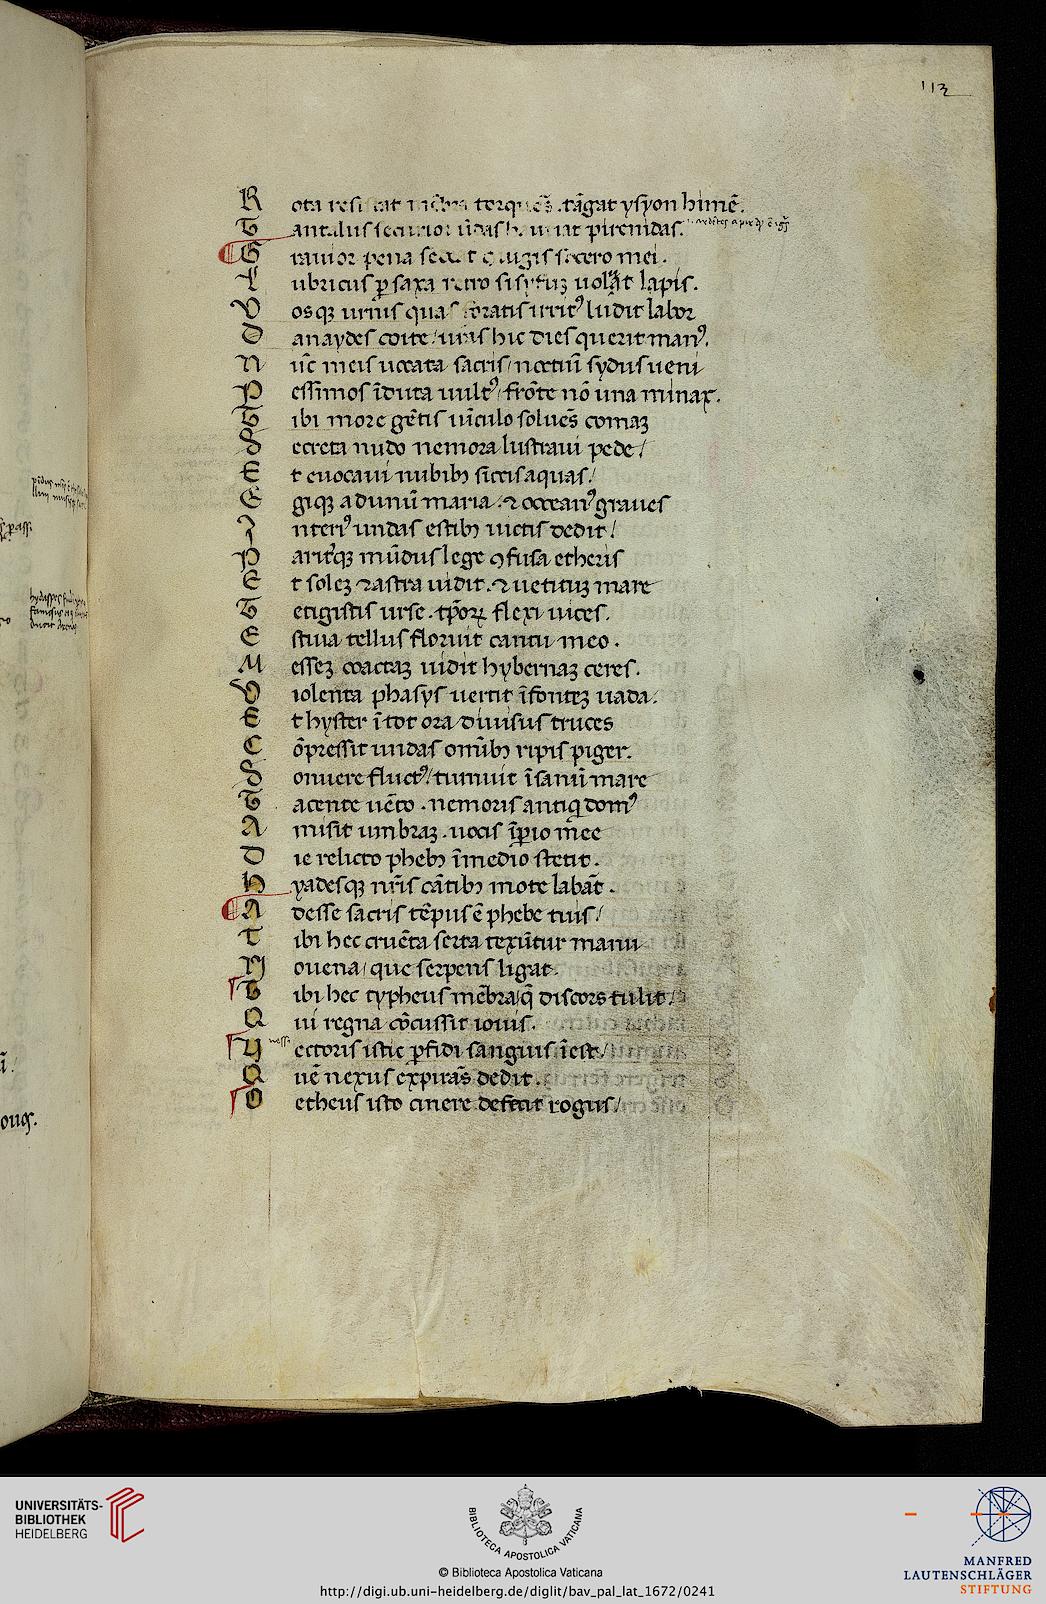 113
Rota resi at mēbra torquēs .tāgat ysyon humē.
Gantalus securior ūdas h. pirenidas.
Grauior pena sed t giugis socero mei.
Lubricus ꝑ saxa retro sisyfuꝫ uolūat lapis.
Vosqꝫ urnis quas foratis irritꝰ ludit labor
Danaydes coite / uras hic dies querit manꝰ.
Nūc meis uocata sacris / noctiū sydus ueni
Pessimos īduta uultꝰ / frōte nō una minax.
Tibi more gētis uīculo soluēs comaꝫ
Secreta nudo nemora lustraui pede /
Et euocaui nubibꝫ siccis aquas /
Egiqꝫ ad unū maria .⁊ occeanꝰ graues
Interiꝰ undas estibꝫ uictis dedit /
Pariṫqꝫ mūdus lege ꝯfusa etheris
Et soleꝫ ⁊ astra uidit .⁊ uetituꝫ mare
Tetigistis urse . tꝑoꝝ flexi uices.
Estiua tellus floruit cantu meo .
Messeꝫ coactaꝫ uidit hybernaꝫ ceres.
Violenta phasys uertit īfonteꝫ uada.
Et hyster ī tot ora diuisus truces
Cōpressit undas omībꝫ ripis piger.
Sonuere fluctꝰ / tumuit īsanū mare
Tacente uēto . nemoris antiqͥ domꝰ
Amisit umbraꝫ . uocis īꝑio mee
Die relicto phebꝫ īmedio stetit .
Hyadesqꝫ nrīs cātibꝫ mote labāt .
Adesse sacris tēpus ē phebe tuis /
Tibi hec cruēta serta texūtur manu
Nouena / que serpens ligat.
Tibi hec typheus mēbra / q̄ discors tulit /
Qui regna cōcussit iouis .
Vectoris istic ꝑfidi sanguis īest /
Quē nexus expirās dedit .
Oetheus isto cinere defecit rogus /
ouqꝫ.
UNIVERSITÄTS-
BIBLIOTHEK
HEIDELBERG
BIBLIOTECA APOSTOLICA VATICANA
© Biblioteca Apostolica Vaticana
http://digi.ub.uni-heidelberg.de/diglit/bav_pal_lat_1672/0241
MANFRED
LAUTENSCHLÄGER
STIFTUNG